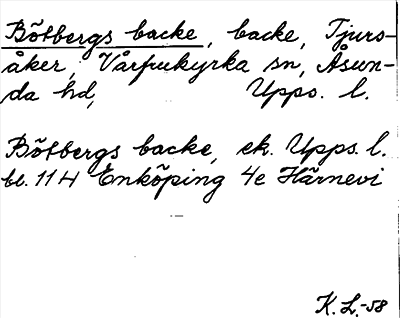 Bötbergs backe, backe, Tjurs-
åker, Vårfrukyrka sn, Åsun-
da hd, Upps. l.
Bötbergs backe, ek. Upps. l.
bl. 114 Enköping 4e Härnevi
K. L. -58